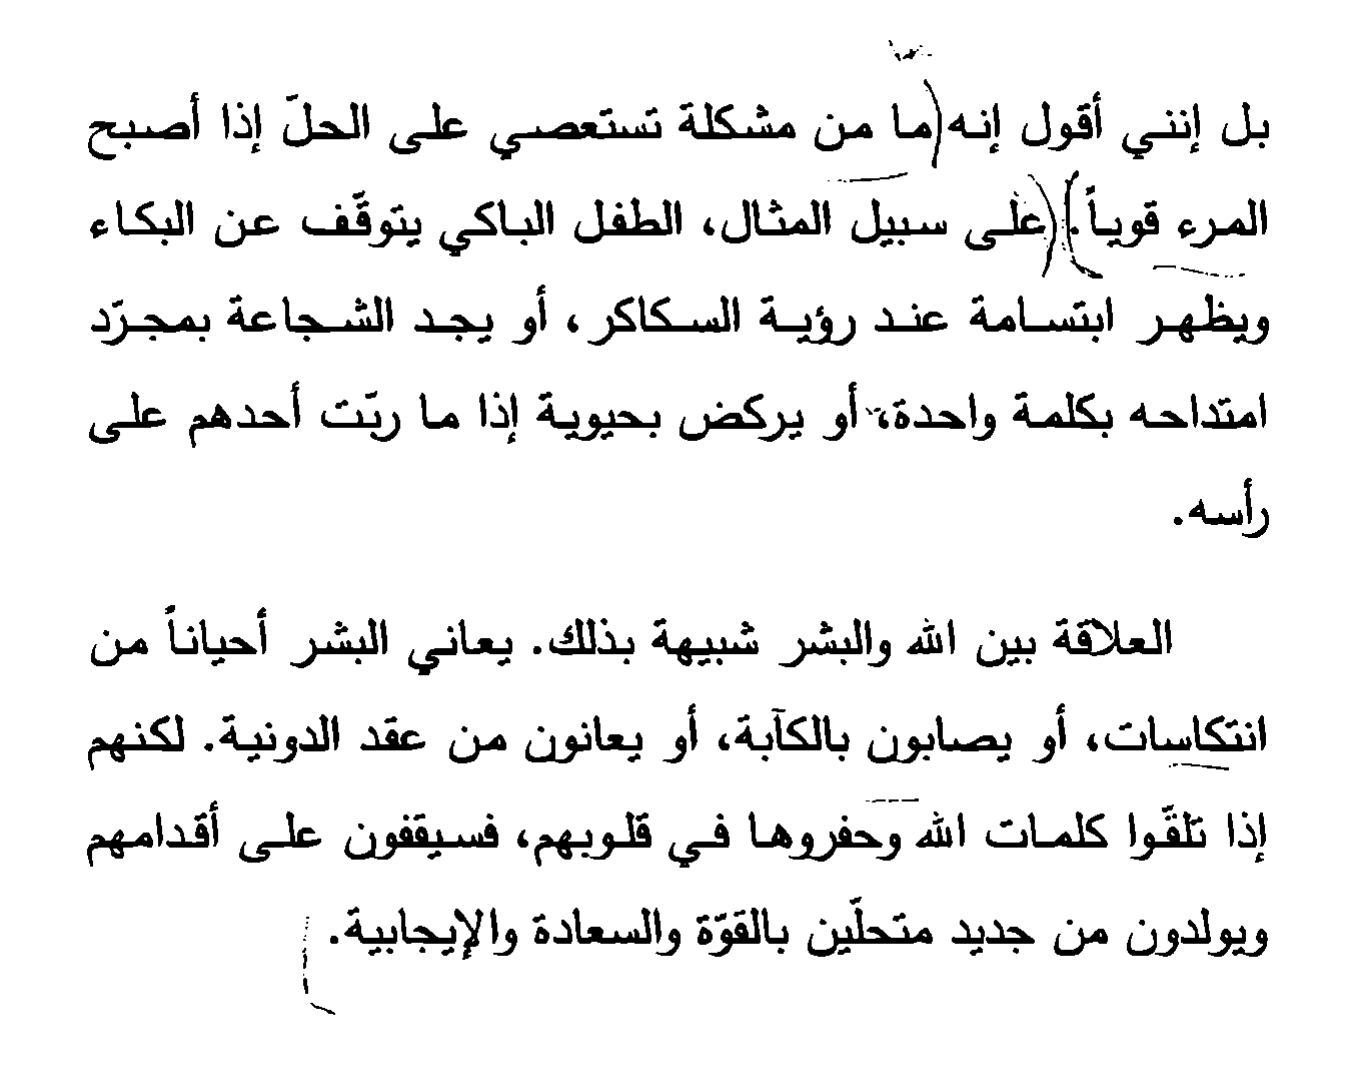 بل إنني أقول إنه (ما من مشكلة تستعصي على الحلّ إذا أصبح
المرء قوياً.) (على سبيل المثال، الطفل الباكي يتوقّف عن البكاء
ويظهر ابتسامة عند رؤية السكاكر، أو يجد الشجاعة بمجرّد
امتداحه بكلمة واحدة، أو يركض بحيوية إذا ما ربّت أحدهم على
رأسه.
العلاقة بين الله والبشر شبيهة بذلك. يعاني البشر أحياناً من
انتكاسات، أو يصابون بالكآبة، أو يعانون من عقد الدونية. لكنهم
إذا تلقّوا كلمات الله وحفروها في قلوبهم، فسيقفون على أقدامهم
ويولدون من جديد متحلّين بالقوّة والسعادة والإيجابية.